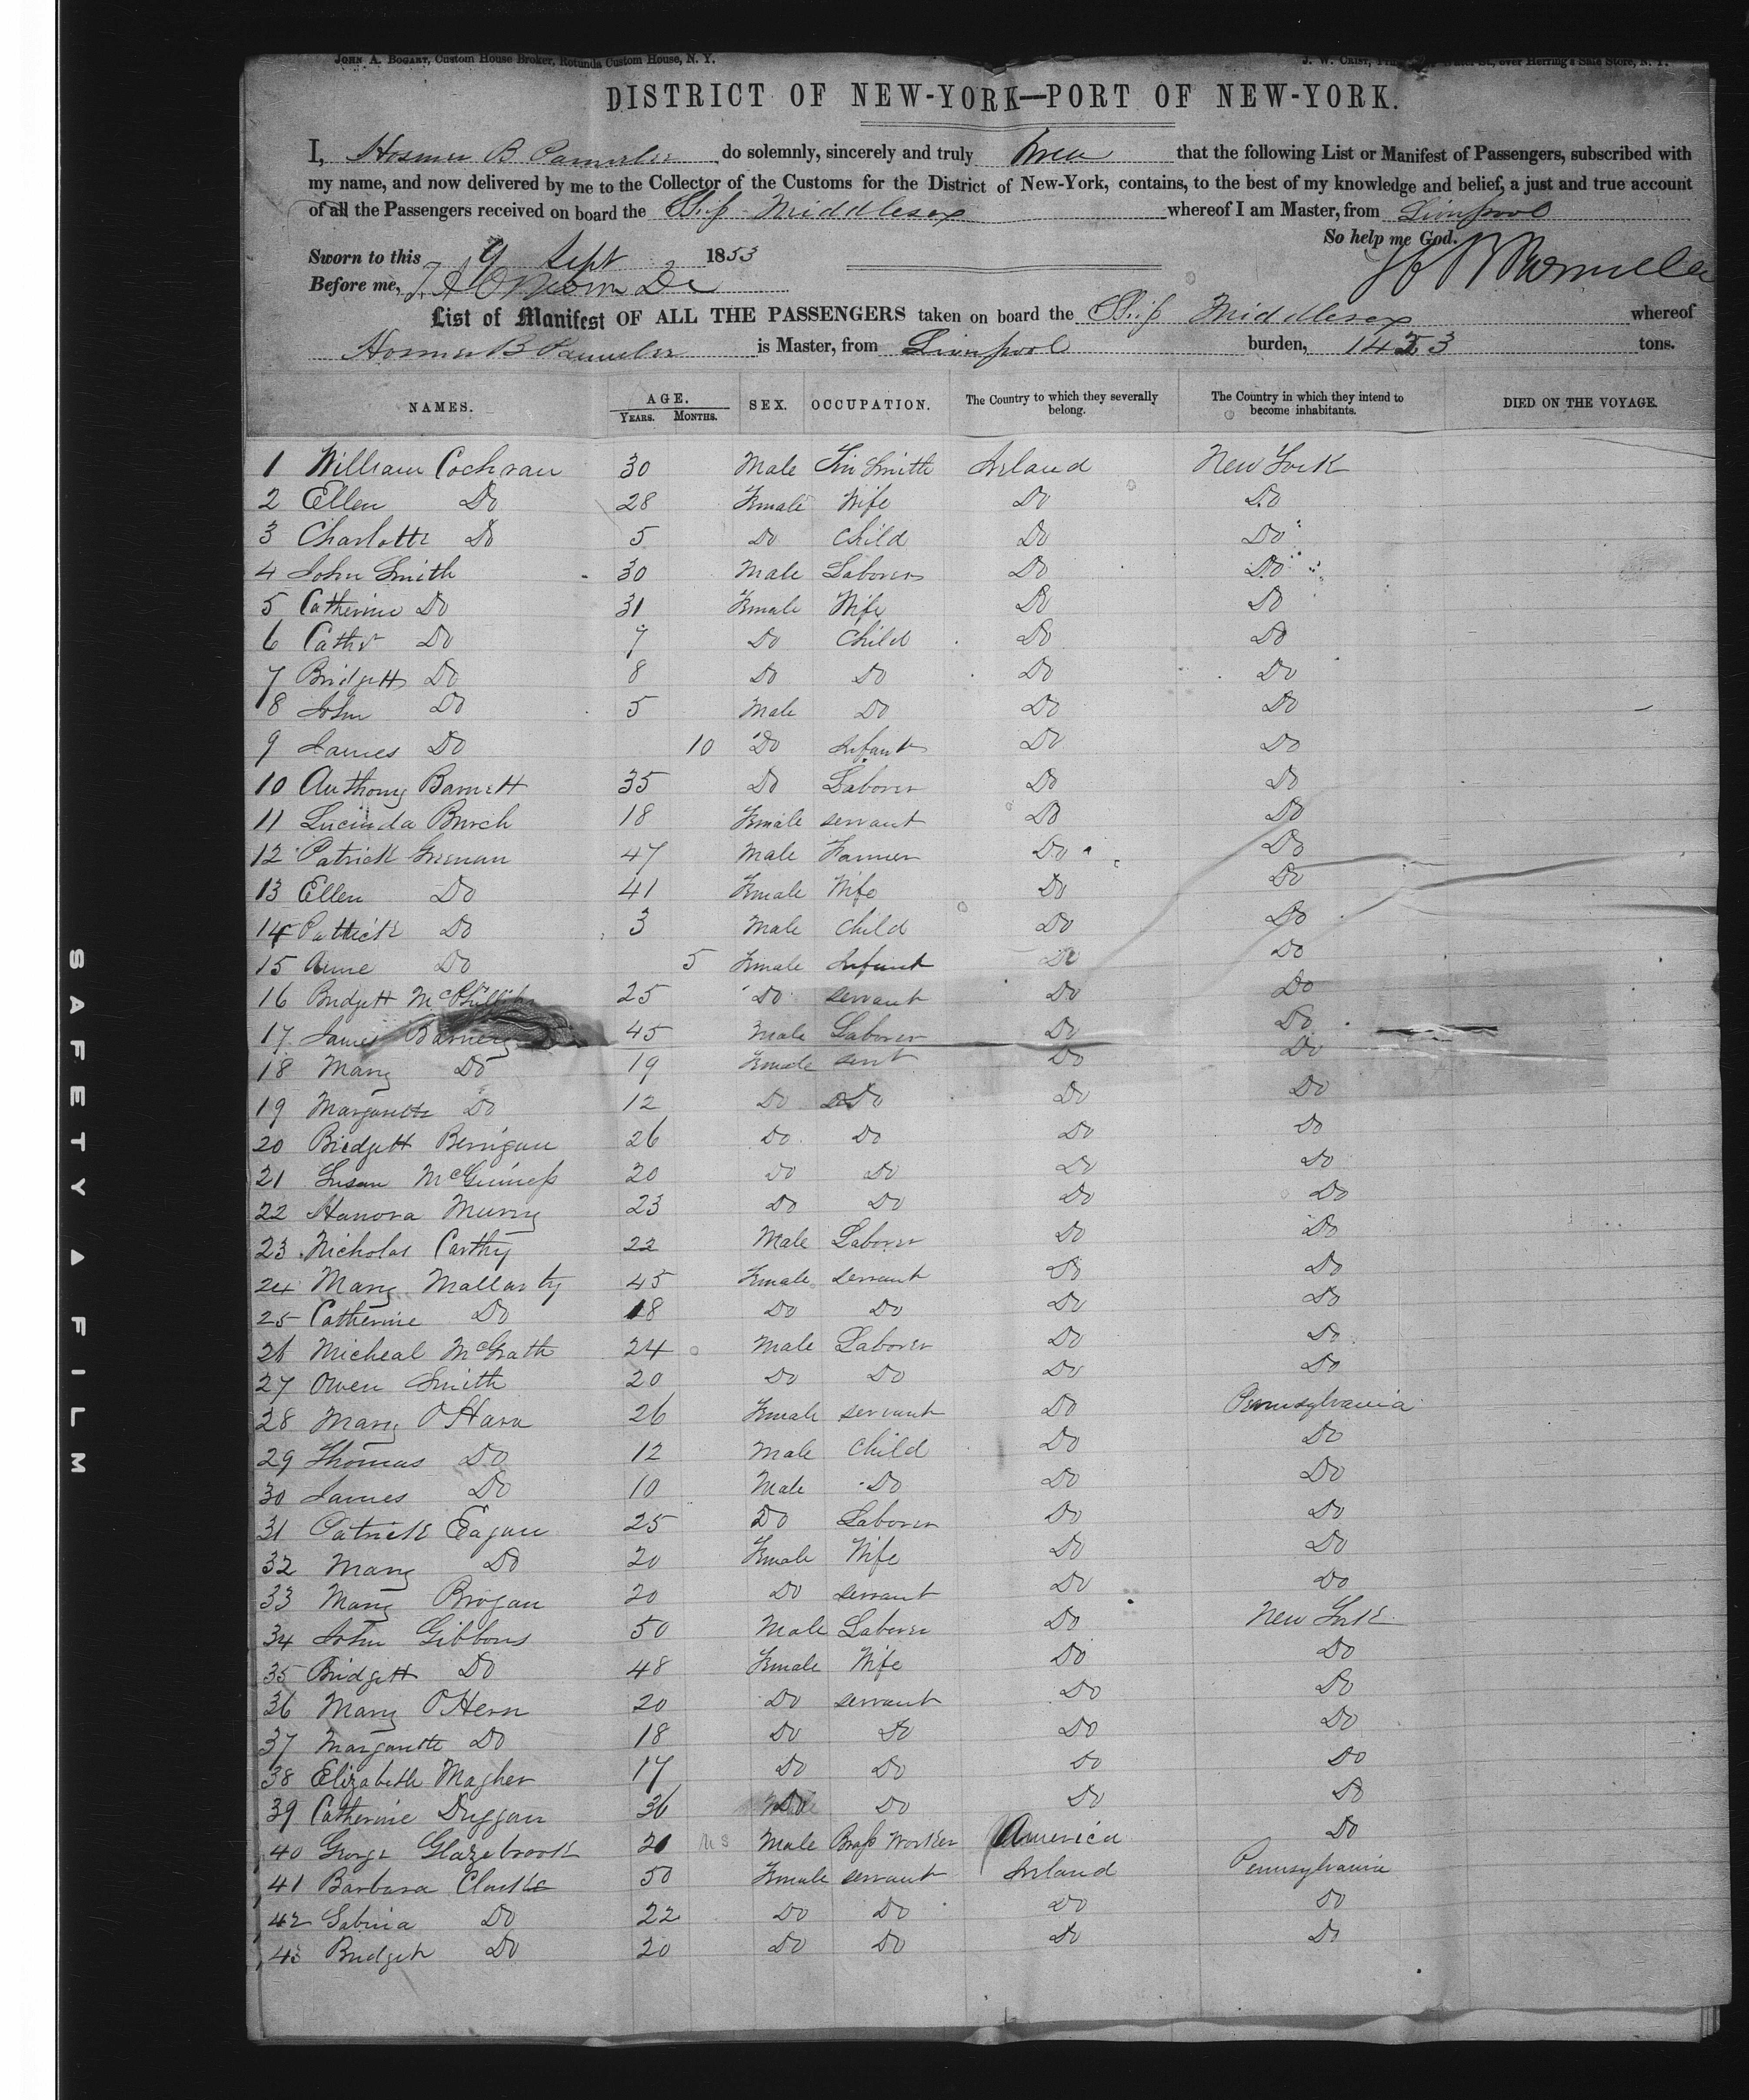 JOHN A. BOGART, Custom House Broker, Rotunda Custom House, N. Y. J. W. ORIST, over Herring's Safe Store, N. Y.
DISTRICT OF NEW-YORK—PORT OF NEW-YORK.
I, Hosmer B Parmelee do solemnly, sincerely and truly swear that the following List or Manifest of Passengers, subscribed with
my name, and now delivered by me to the Collector of the Customs for the District of New-York, contains, to the best of my knowledge and belief, a just and true account
of all the Passengers received on board the Ship Middlesex whereof I am Master, from Liverpool
So help me God.
Sworn to this 9 Sept 1853 H B Parmelee
Before me,
List of Manifest OF ALL THE PASSENGERS taken on board the Ship Middlesex whereof
Hosmer B Parmelee is Master, from Liverpool burden, tons.
NAMES. AGE. YEARS. MONTHS. SEX. OCCUPATION. The Country to which they severally belong. The Country in which they intend to become inhabitants. DIED ON THE VOYAGE.
1 William Cochran 30 Male Tin Smith Ireland New York
2 Ellen Do 28 Female Wife Do Do
3 Charlotte Do 5 Do Child Do Do
4 John Smith 30 Male Laborer Do Do
5 Catherine Do 31 Female Wife Do Do
6 Cathr Do 7 Do Child Do Do
7 Bridgett Do 8 Do Do Do Do
8 John Do 5 Male Do Do Do
9 James Do 10 Do Infant Do Do
10 Anthony Barnett 35 Do Laborer Do Do
11 Lucinda Burch 18 Female servant Do Do
12 Patrick Grenan 47 Male Farmer Do Do
13 Ellen Do 41 Female Wife Do Do
14 Patrick Do 3 Male Child Do Do
15 Anne Do 5 Female Infant Do Do
16 Bridgett McPhillips 25 Do servant Do Do
17 James Barnery 45 Male Laborer Do Do
18 Mary Do 19 Female sert Do Do
19 Margarette Do 12 Do Do Do Do
20 Bridgett Berrigan 26 Do Do Do Do
21 Susan McGuiness 20 Do Do Do Do
22 Hanora Murry 23 Do Do Do Do
23 Nicholas Carthy 22 Male Laborer Do Do
24 Mary Mallarty 45 Female servant Do Do
25 Catherine Do 18 Do Do Do Do
26 Micheal McGrath 24 Male Laborer Do Do
27 Owen Smith 20 Do Do Do Do
28 Mary O'Hara 26 Female servant Do Pennsylvania
29 Thomas Do 12 Male Child Do Do
30 James Do 10 Male Do Do Do
31 Patrick Eagan 25 Do Laborer Do Do
32 Mary Do 20 Female Wife Do Do
33 Mary Brogan 20 Do servant Do Do
34 John Gibbons 50 Male Laborer Do New York
35 Bridgett Do 48 Female Wife Do Do
36 Mary O'Hern 20 Do servant Do Do
37 Margarette Do 18 Do Do Do Do
38 Elizabeth Magher 17 Do Do Do Do
39 Catherine Duggan 36 Do Do Do Do
40 George Glazebrook 21 US Male Brass Worker America Do
41 Barbara Clarke 50 Female servant Ireland Pennsylvania
42 Sabina Do 22 Do Do Do Do
43 Bridget Do 20 Do Do Do Do
SAFETY FILM